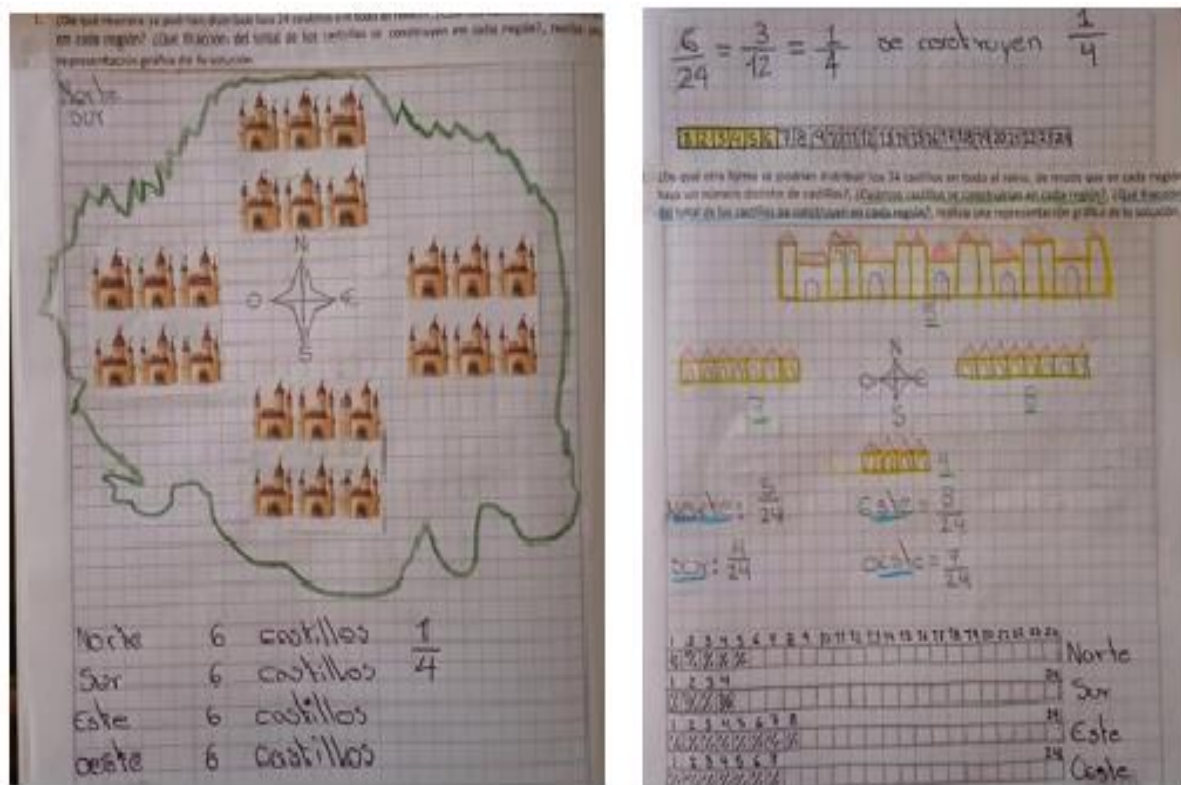 en cada región? ¿Qué fracción del total de los castillos se construyen en cada región?, realiza una
representación gráfica de tu solución
Norte
sur
N
O E
S
Norte 6 castillos 1/4
Sur 6 castillos
Este 6 castillos
oeste 6 castillos
6/24 = 3/12 = 1/4 se construyen 1/4
1 2 3 4 5 6 7 8 9 10 11 12 13 14 15 16 17 18 19 20 21 22 23 24
¿De qué otra forma se podrían distribuir los 24 castillos en todo el reino, de modo que en cada región
haya un número distinto de castillos?, ¿Cuántos castillos se construirían en cada región?, ¿Qué fracción
del total de los castillos se construyen en cada región?, realiza una representación gráfica de la solución
5
N
O E
S
7 8
4
Norte: 5/24 Este = 8/24
sur: 4/24 oeste = 7/24
1 2 3 4 5 6 7 8 9 10 11 12 13 14 15 16 17 18 19 20 21 22 23 24
Norte
1 2 3 4 24
Sur
1 2 3 4 5 6 7 8 24
Este
1 2 3 4 5 6 7 24
Oeste